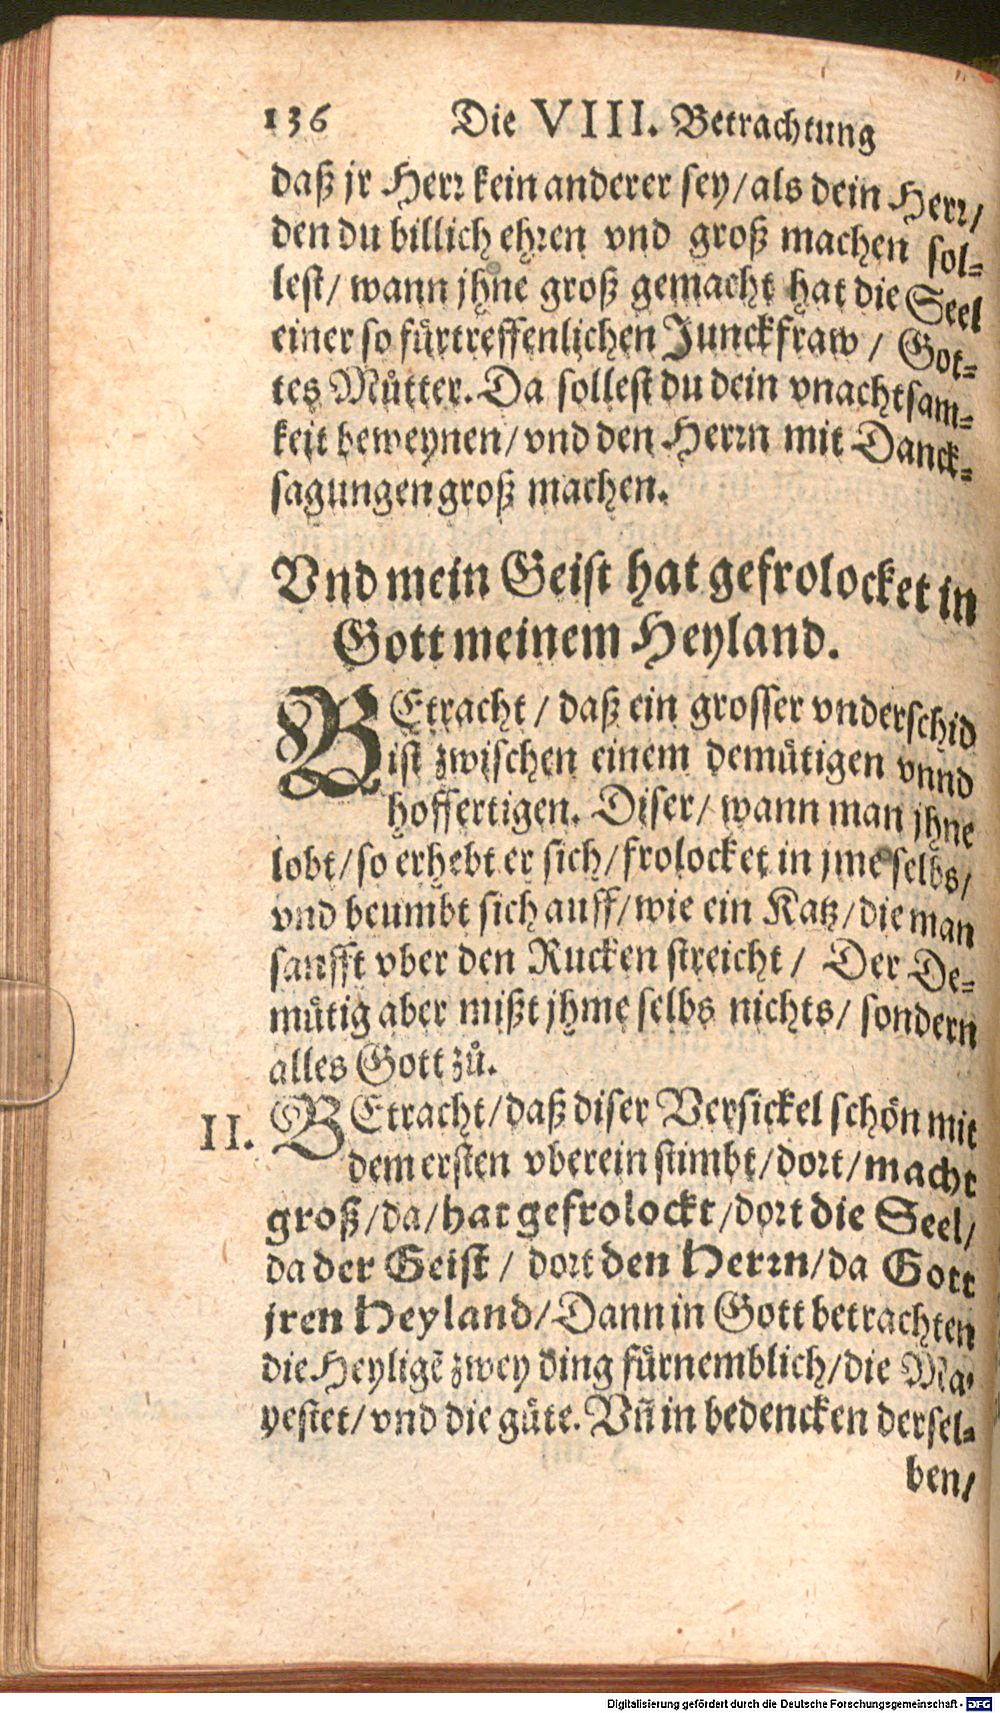 136 Die VIII. Betrachtung
daß jr Herꝛ kein anderer sey/als dein Herꝛ/
den du billich ehꝛen vnd groß machen sol⸗
lest/ wann jhne groß gemacht hat die Seel
einer so fürtreffenlichen Junckfraw / Got⸗
tes Můtter. Da sollest du dein vnachtsam⸗
keit beweynen/vnd den Herꝛn mit Danck⸗
sagungen groß machen.
Vnd mein Geist hat gefrolocket in
Gott meinem Heyland.
BEtracht / daß ein grosser vnderschid
ist zwischen einem demütigen vnnd
hoffertigen. Diser/ wann man jhne
lobt/so erhebt er sich/frolocket in jme selbs/
vnd beumbt sich auff/wie ein Katz/die man
sanfft vber den Rucken streicht / Der De⸗
mütig aber mißt jhme selbs nichts/ sondern
alles Gott zů.
II. BEtracht/daß diser Versickel schön mit
dem ersten vberein stimbt/doꝛt/macht
groß/da/hat gefrolockt/doꝛt die Seel/
da der Geist / doꝛt den Herꝛn/da Gott
jren Heyland/Dann in Gott betrachten
die Heyligẽ zwey ding fürnemblich/die Ma⸗
yestet/vnd die güte. Vñ in bedencken dersel⸗
ben/
Digitalisierung gefördert durch die Deutsche Forschungsgemeinschaft - DFG